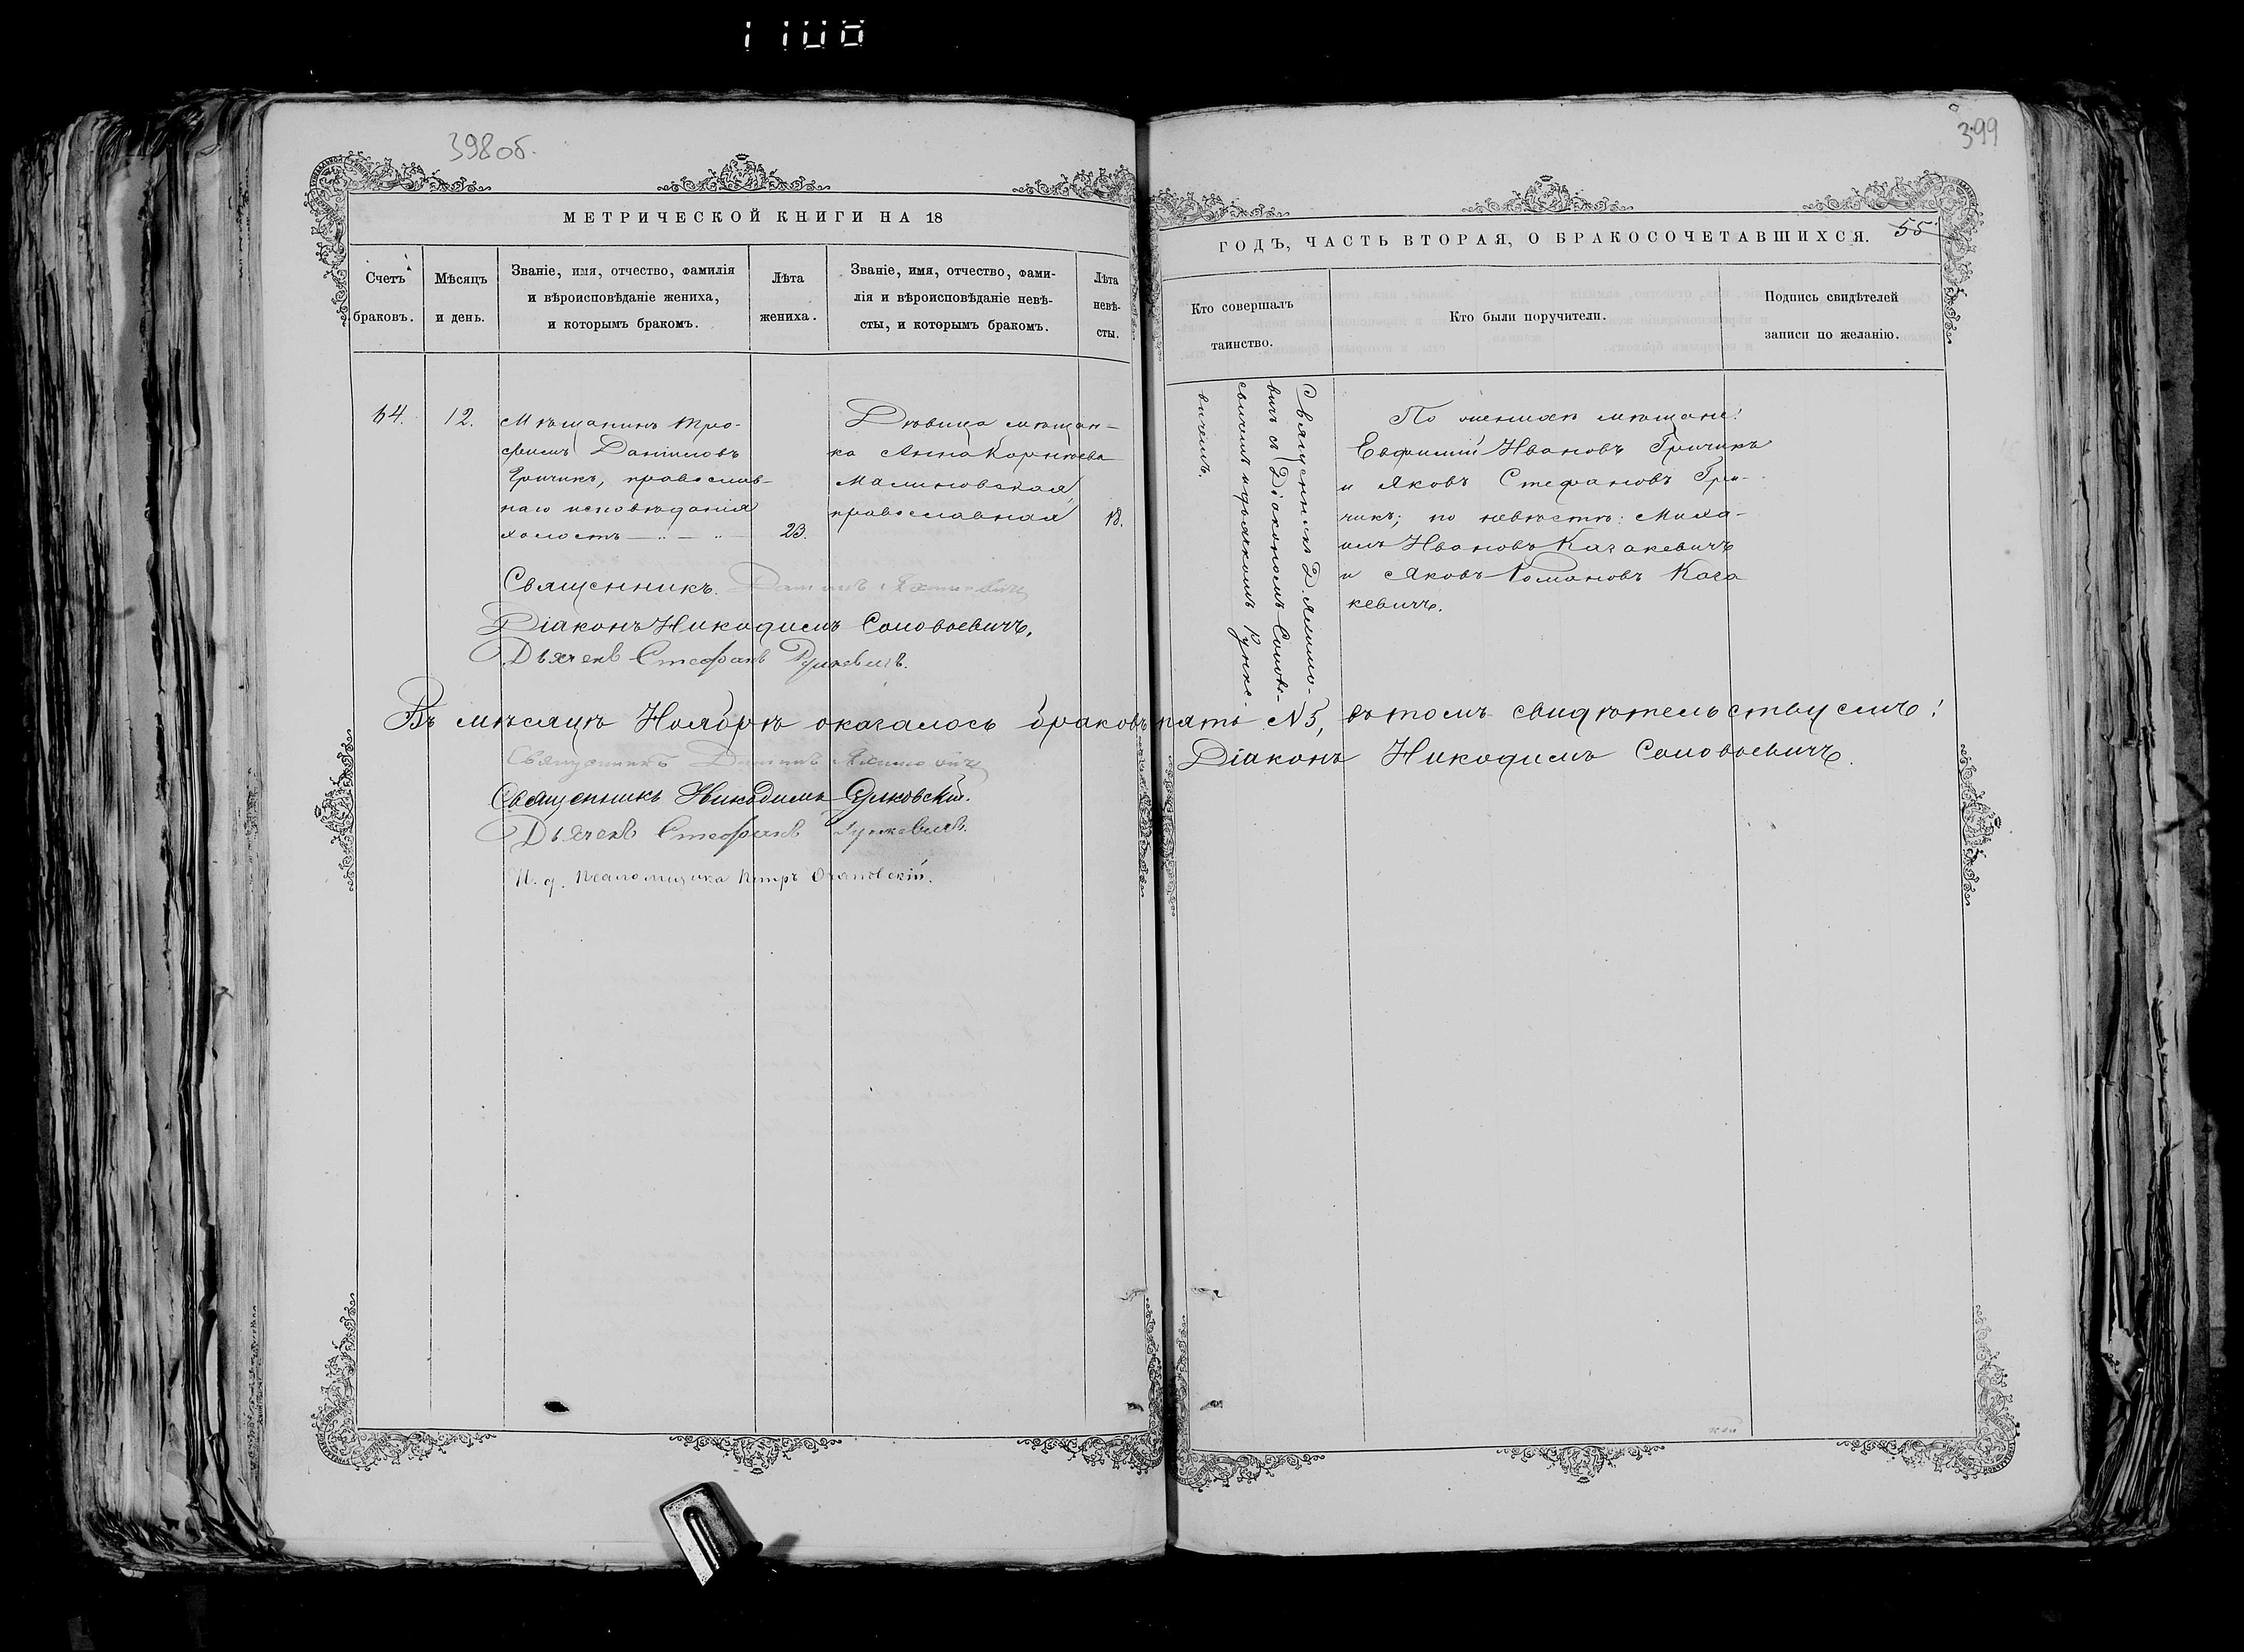 1108
398 об.
МЕТРИЧЕСКОЙ КНИГИ НА 18
Счетъ браковъ.
Мѣсяцъ и день.
Званіе, имя, отчество, фамилія
и вѣроисповѣданіе жениха,
и которымъ бракомъ.
Лѣта
жениха.
Званіе, имя, отчество, фами-
лія и вѣроисповѣданіе невѣ-
сты, и которымъ бракомъ.
Лѣта
невѣ-
сты.
64.
12.
Мѣщанинъ Тро-
фимъ Даніиловъ
Гричикъ, православ-
наго исповѣданія
холостъ
23.
Дѣвица мѣщан-
ка Анна Корнѣева
Малиновская,
православная
18.
Священникъ
Діаконъ Никодимъ Соловьевичъ.
Дьячекъ Стефанъ Рункевичъ.
Въ мѣсяцѣ Ноябрѣ оказалось браковъ пять № 5, въ томъ свидѣтельствуемъ:
Священникъ
Священникъ Никодимъ
Дьячекъ Стефанъ Рункевичъ.
И. д. псаломщика Петръ
399
55
ГОДЪ, ЧАСТЬ ВТОРАЯ, О БРАКОСОЧЕТАВШИХСЯ.
Кто совершалъ
таинство.
Кто были поручители.
Подпись свидѣтелей
записи по желанію.
Священникъ Д. Яхимо-
вичъ съ Діакономъ Соловье-
вичемъ и дьячкомъ Рунке-
вичемъ.
По женихѣ мѣщане:
Евфимій Ивановъ Гричикъ
и Яковъ Стефановъ Гри-
чикъ; по невѣстѣ: Миха-
илъ Ивановъ Казакевичъ
и Яковъ Романовъ Каза
кевичъ.
Діаконъ Никодимъ Соловьевичъ.